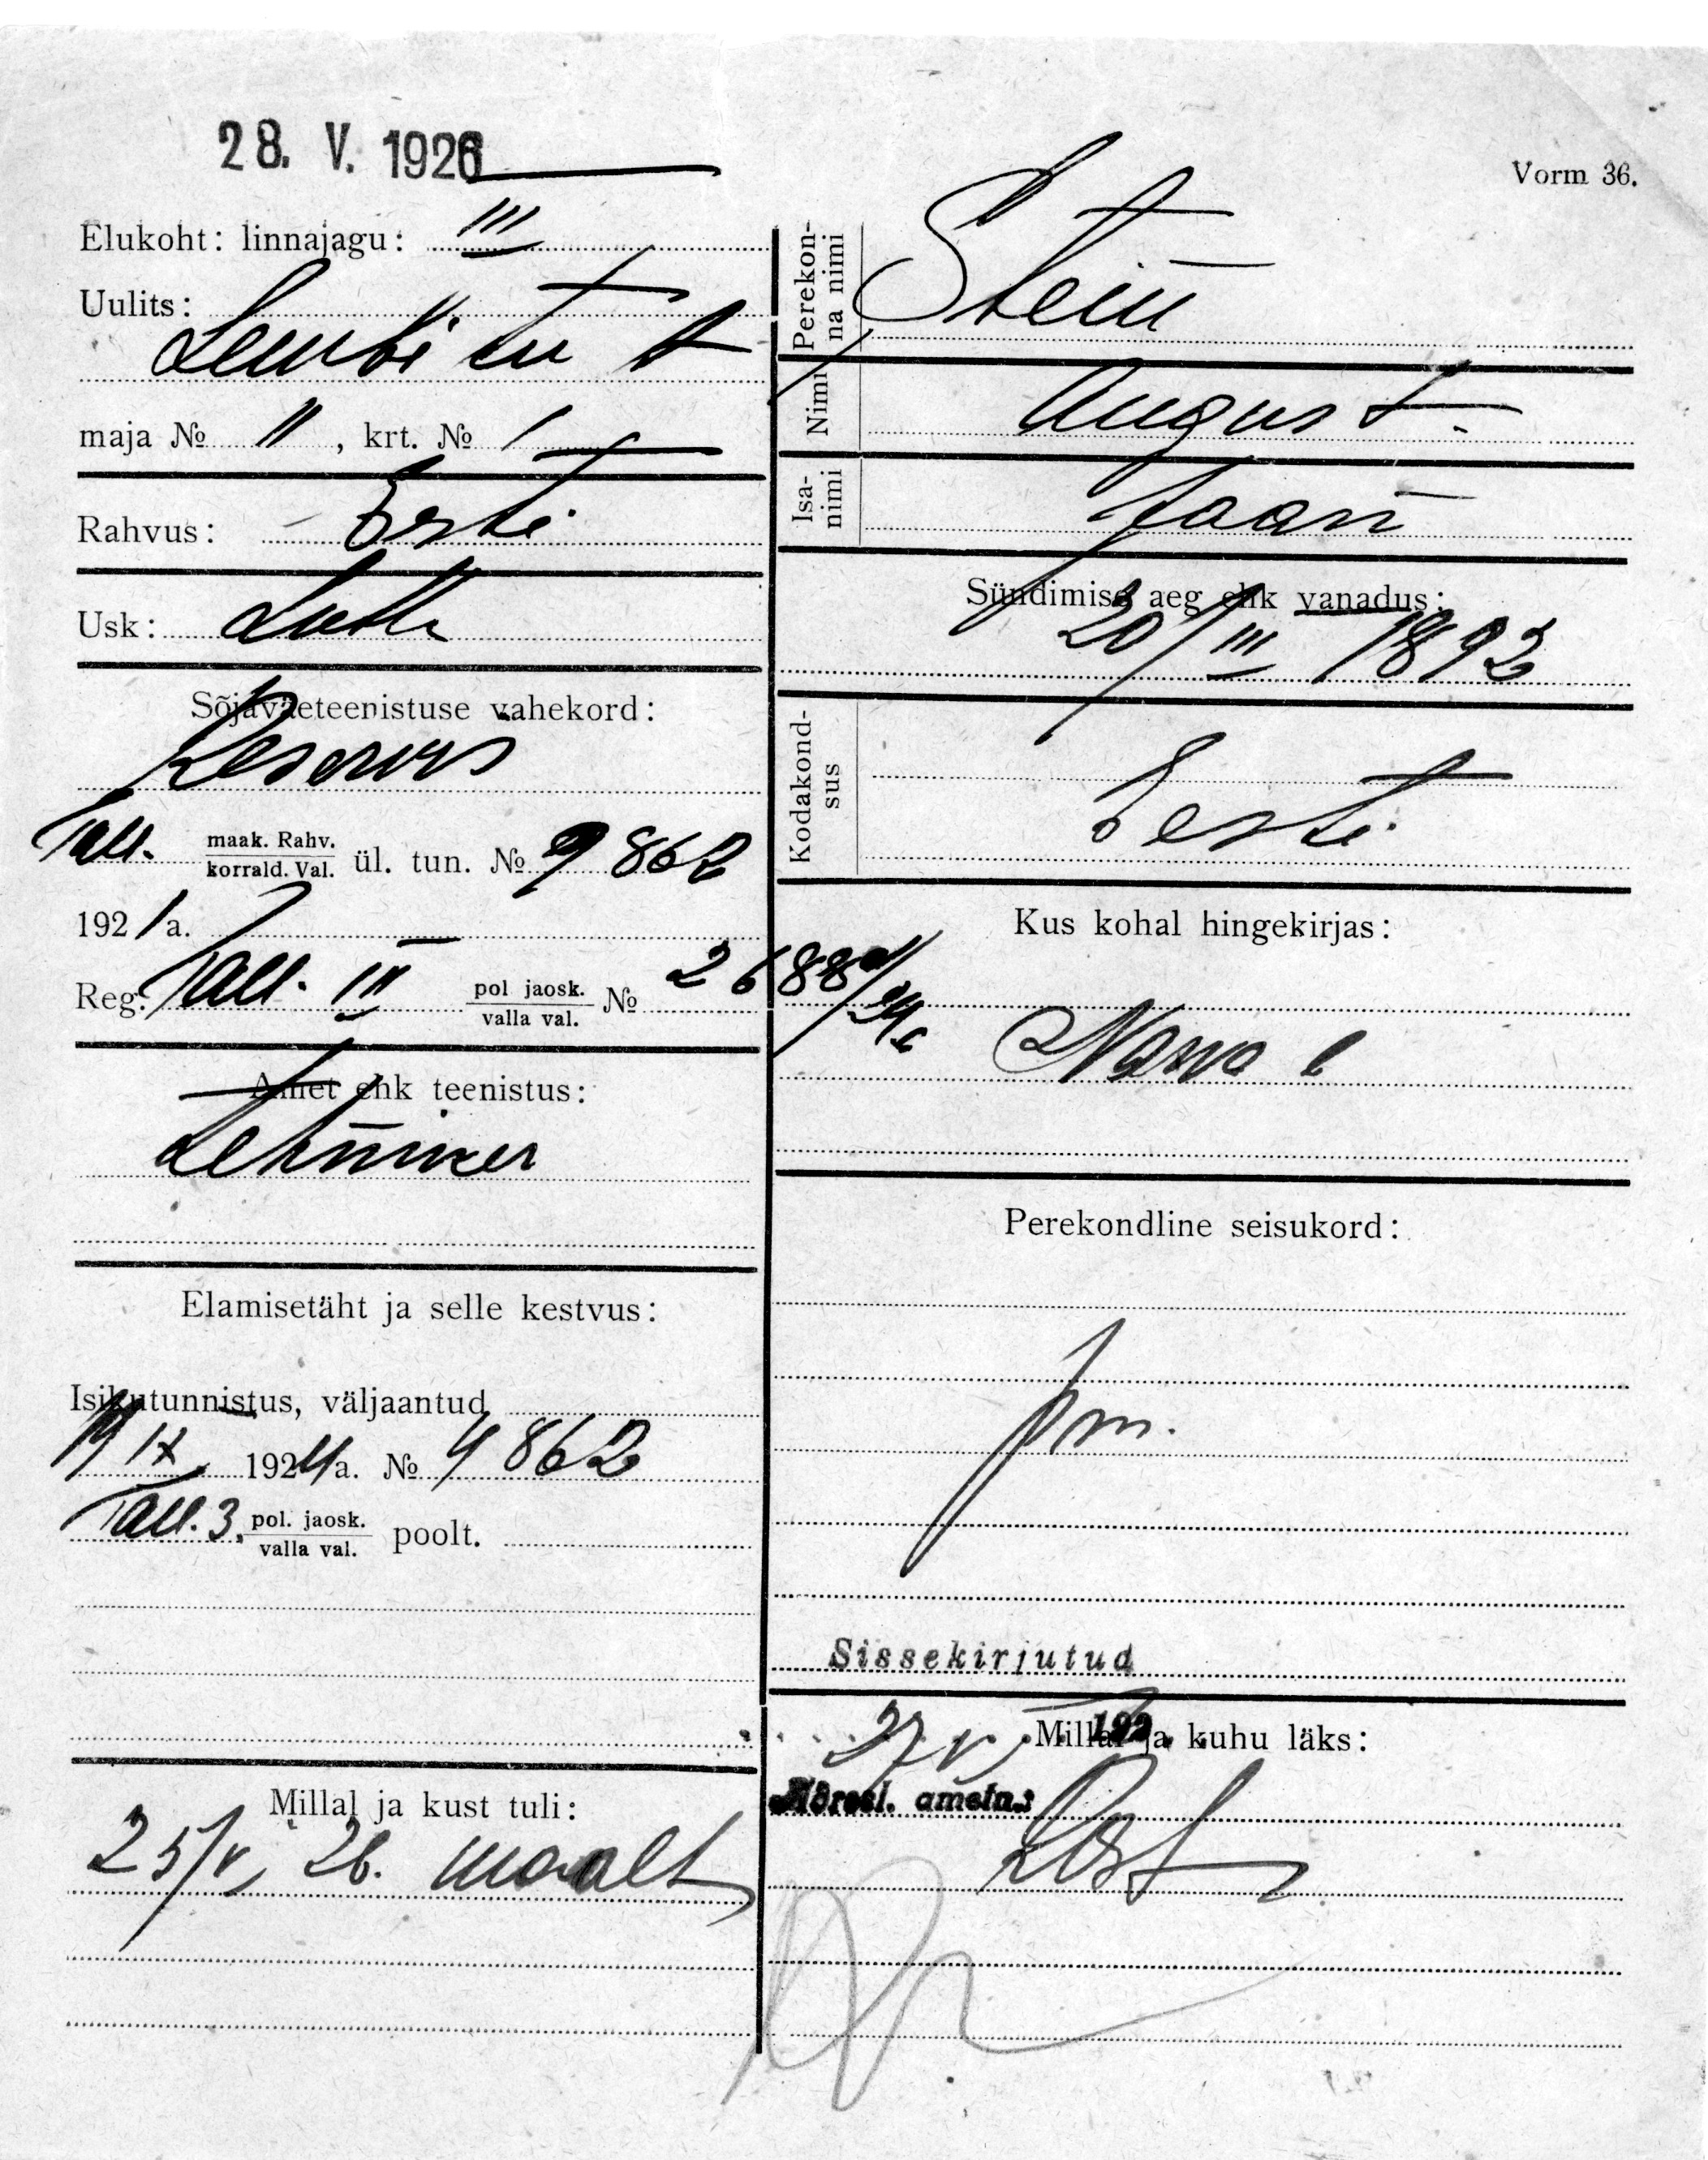 28. V. 1926
Vorm 36.
Elukoht: linnajagu: III
Uulits:
Lembitu t
maja № 11, krt. № 1
Rahvus: Eesti
Usk: Luth
Sõjaväeteenistuse vahekord:
Reservis
Tall. maak. Rahv. korrald. Val. ül. tun. № 9862
1921 a.
Reg. Tall. III pol jaosk. valla val. № 2688
Amet ehk teenistus:
Tehniker
Elamisetäht ja selle kestvus:
Isikutunnistus, väljaantud
19 IX 1924 a. № 4862
Tall. 3. pol. jaosk. valla val. poolt.
Millal ja kust tuli:
25/V 26. maalt
Perekonna nimi Stein
Nimi August.
Isanimi Jaan
Sündimise aeg ehk vanadus:
20/III 1892
Kodakondsus Eesti
Kus kohal hingekirjas:
Narva l
Perekondline seisukord:
pm.
Sissekirjutud
27 V 192
Millal ja kuhu läks:
ametn.: